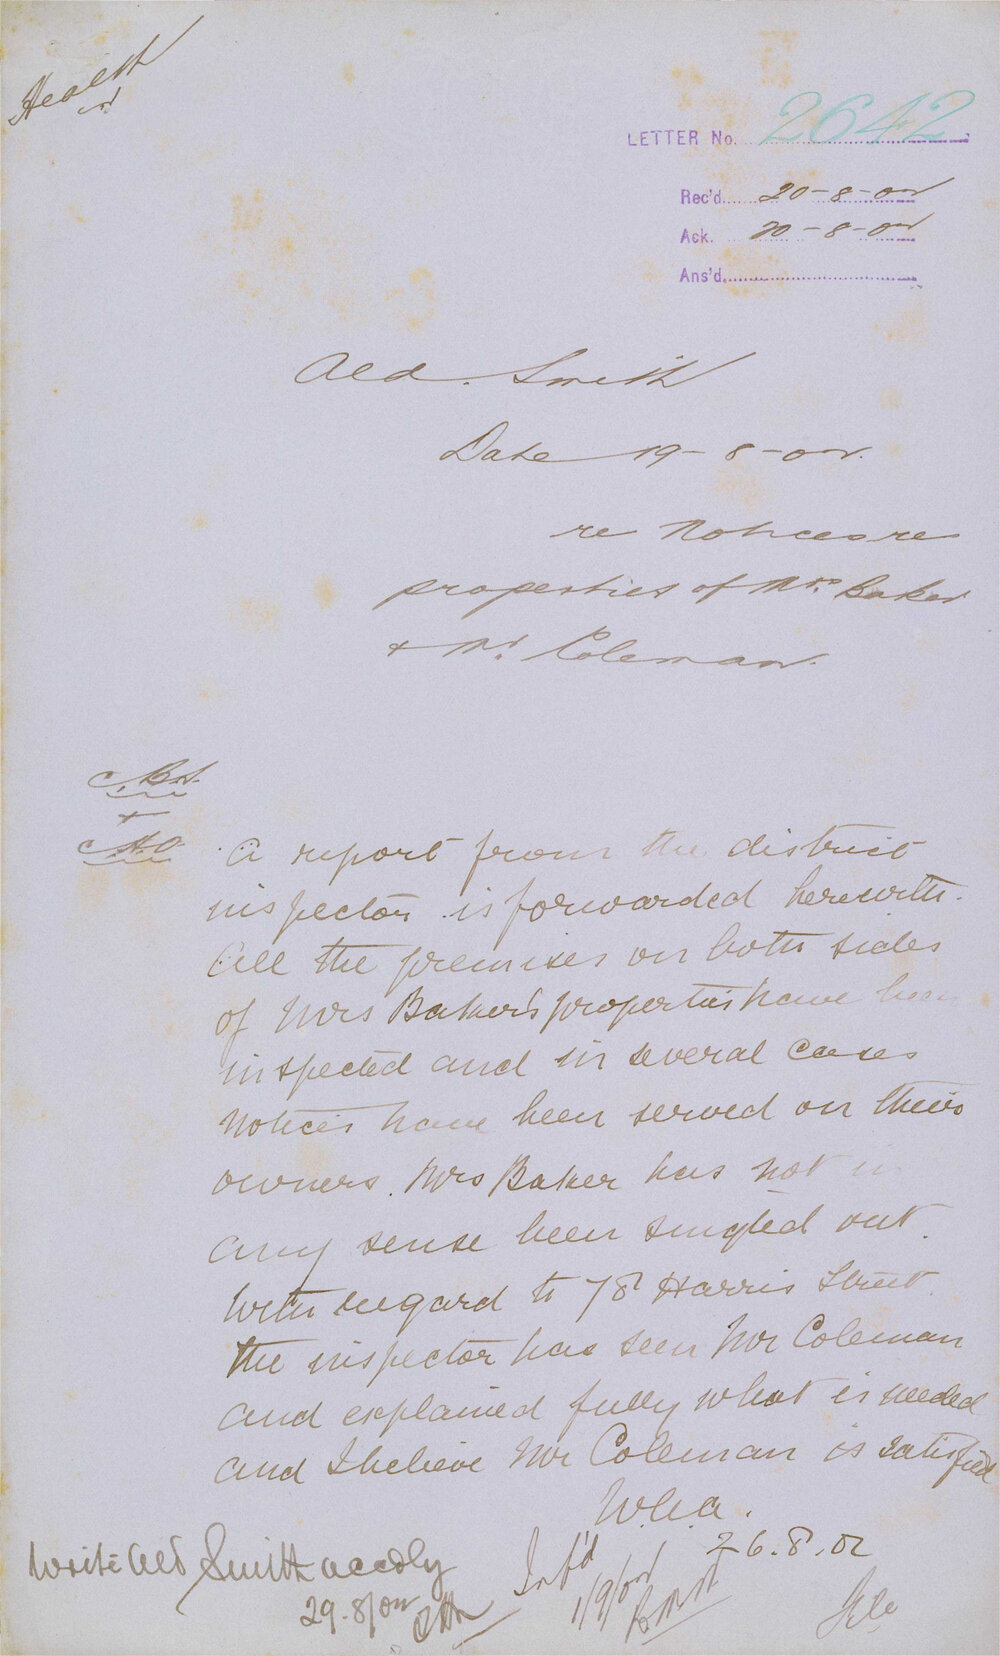 Health
LETTER No. 2642
Rec'd. 20-8-02
Ack. 20-8-02
Ans'd.
Ald. Smith
Date 19-8-02.
re Notices re
properties of Mrs. Baker
& Mr. Coleman.
+
A report from the district
inspector is forwarded herewith.
All the premises on both sides
of Mrs Baker's properties have been
inspected and in several cases
notices have been served on their
owners. Mrs Baker has not in
any sense been singled out.
With regard to 78 Harris Street
the inspector has seen Mr Coleman
and explained fully what is needed
and I believe Mr Coleman is satisfied
W.G.A.
26.8.02
Write Ald Smith accdly
29.8/02
Inf'd
1/9/02